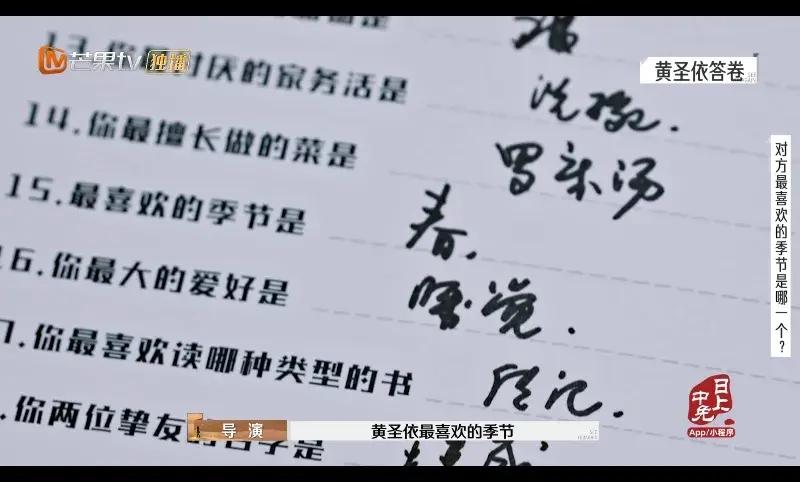 芒果tv 独播
黄圣依答卷
13.你最讨厌的家务活是 洗撤.
14.你最擅长做的菜是 罗宋汤
15.最喜欢的季节是 春.
16.你最大的爱好是 睡觉.
7.你最喜欢读哪种类型的书 传记.
.你两位挚友的名字是
对方最喜欢的季节是哪一个?
日上
中免
App/小程序
导演 黄圣依最喜欢的季节